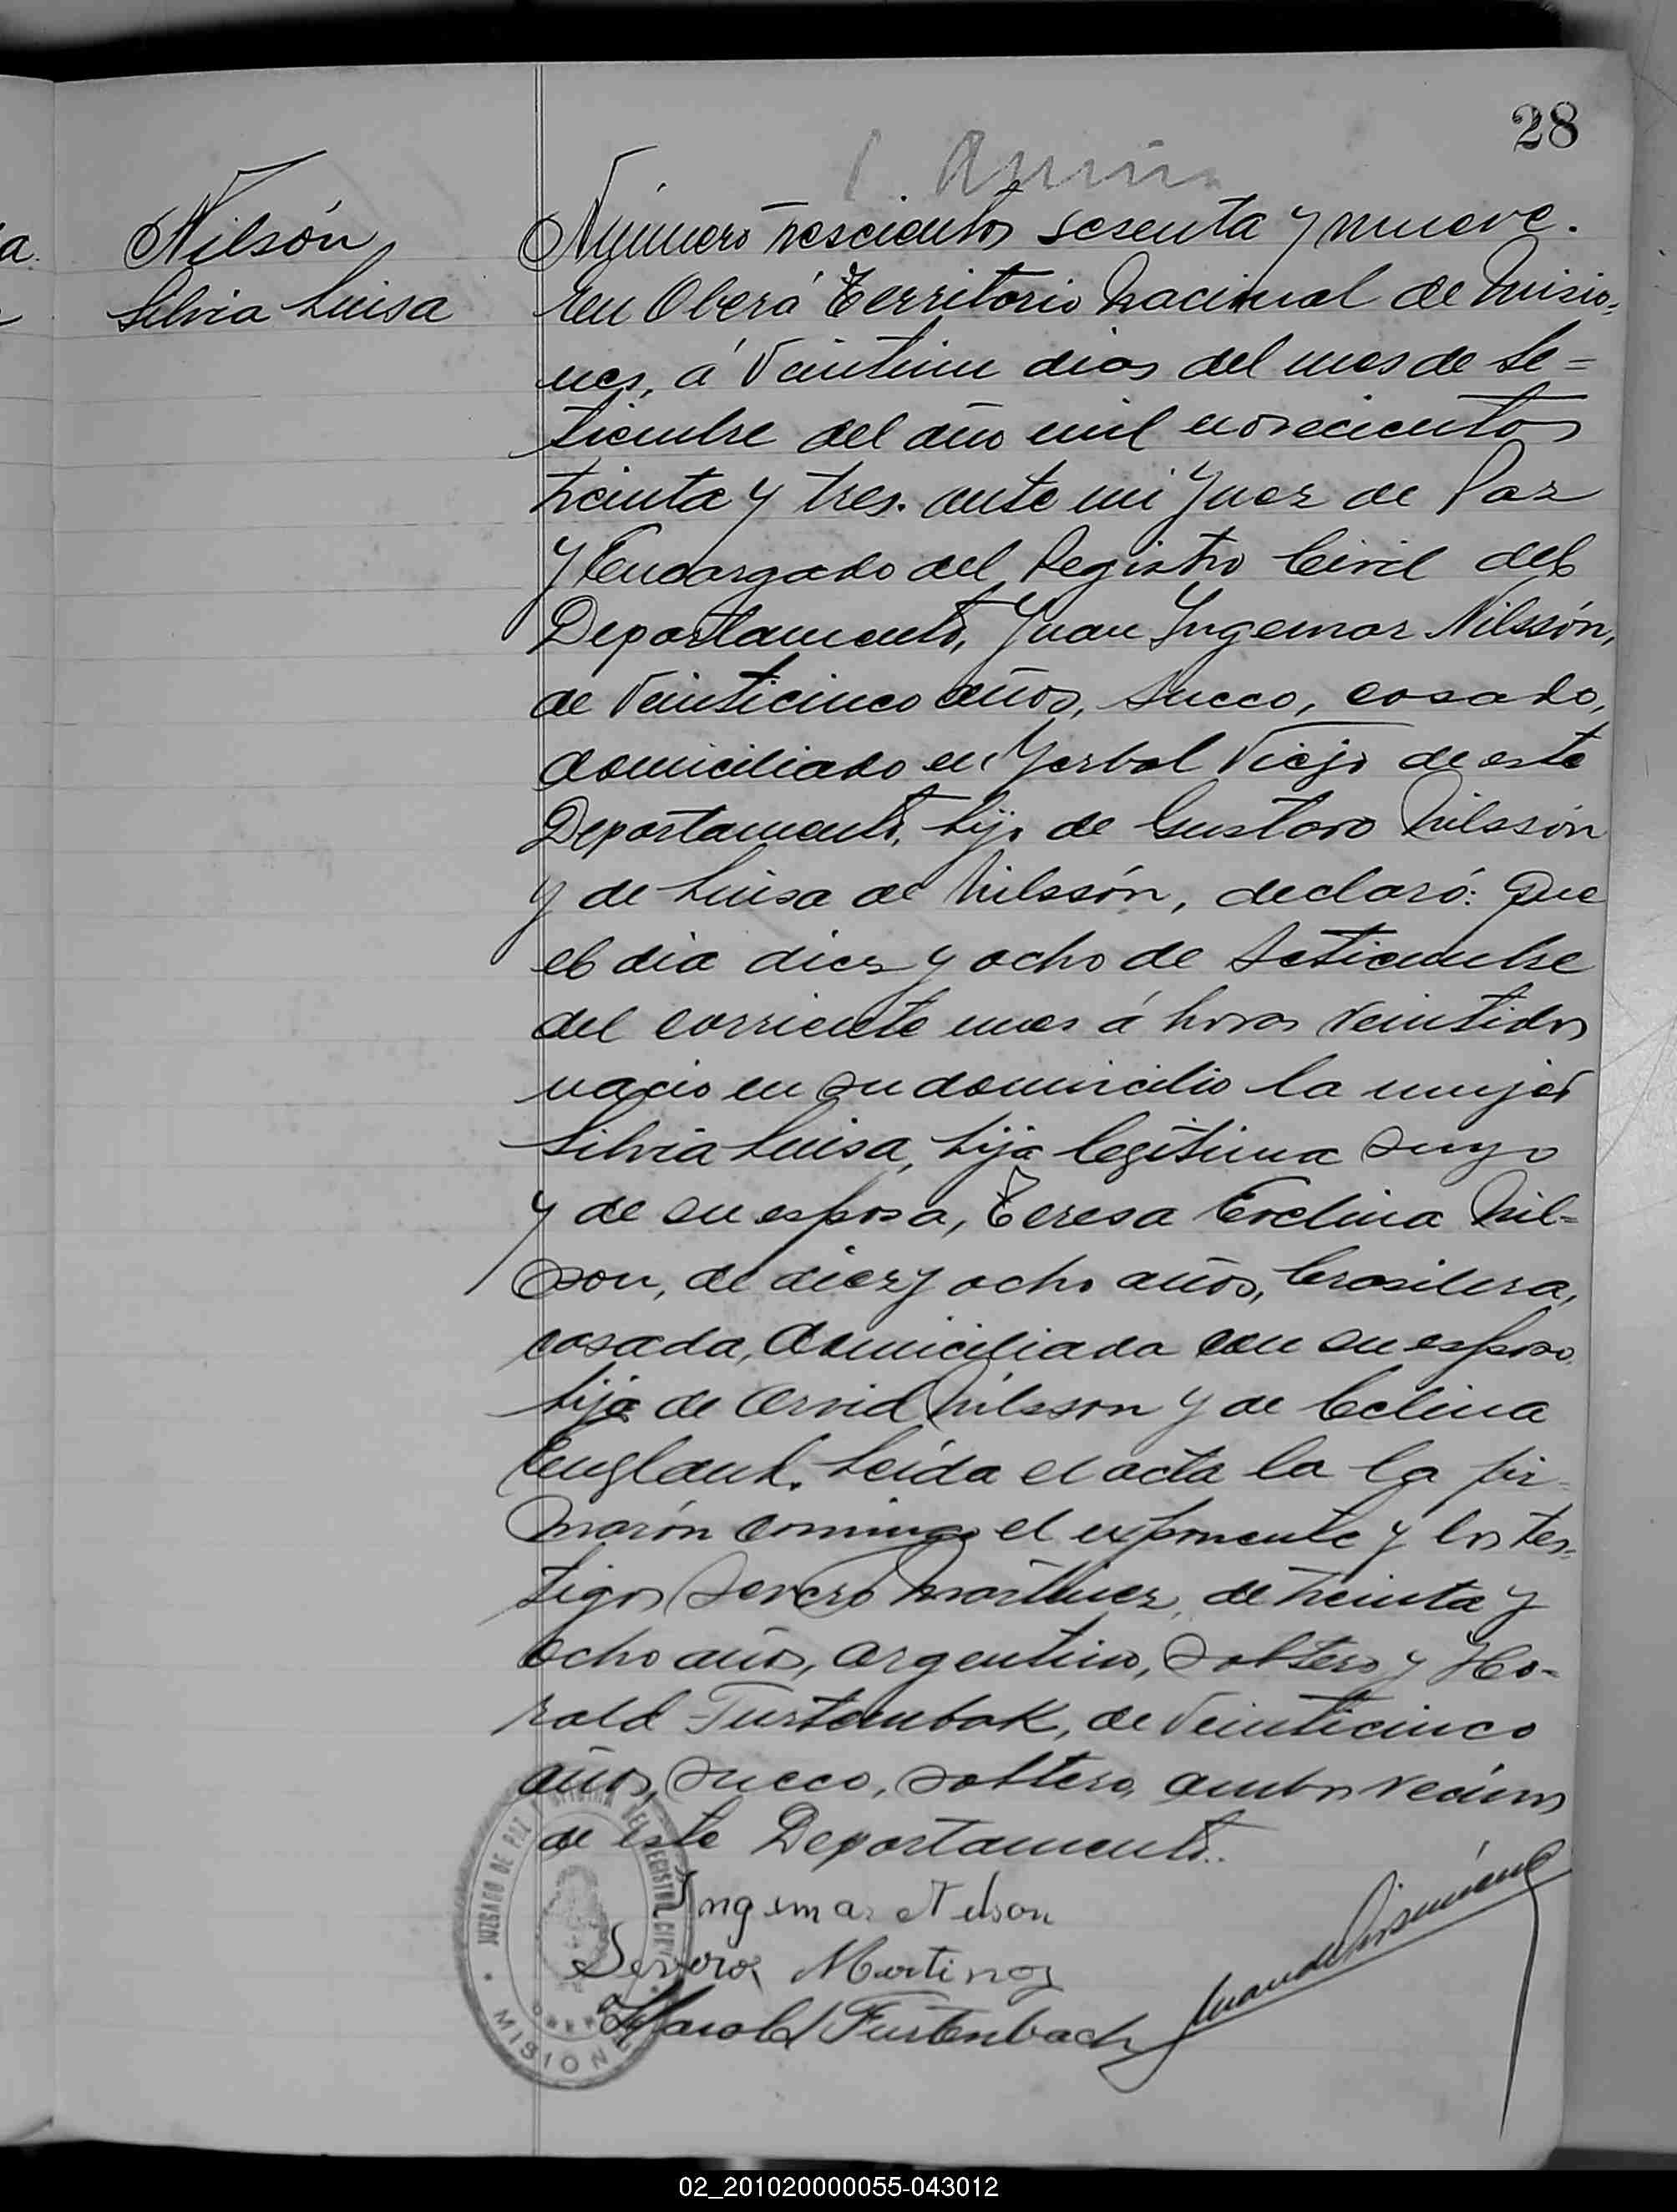 28
Nilsón
Silvia Luisa
Número trescientos sesenta y nueve.
En Oberá Territorio Nacional de Misio-
nes, á veintiun dias del mes de Se=
tiembre del año mil novecientos
treinta y tres. ante mi Juez de Paz
y Encargado del Registro Civil del
Departamento, Juan Ingemar Nilssón,
de veinticinco años, sueco, casado,
domiciliado en Yerbal Viejo de este
Departamento, hijo de Gustavo Nilssón
y de Luisa de Nilssón, declaró: Que
el dia diez y ocho de Setiembre
del corriente mes á horas veintidos
nacio en su domicilio la mujer
Silvia Luisa, hija legitima suya
y de su esposa, Teresa Evelina Nil=
son, de diez y ocho años, brasilera,
casada, domiciliada con su esposo,
hija de Arvid Nilsson y de Celina
England. Leida el acta la la fir-
marón conmigo el exponente y los tes-
tigos Severo Martinez, de treinta y
ocho años, argentino, soltero y Ha-
rald Furstenbak, de veinticinco
años, sueco, soltero, ambos vecinos
de este Departamento.
Ingemar Nilson
Severo Martinez
Harold Furstenbach
JUZGADO DE PAZ Y OFICINA DEL REGISTRO CIVIL
MISIONES
02_201020000055-043012